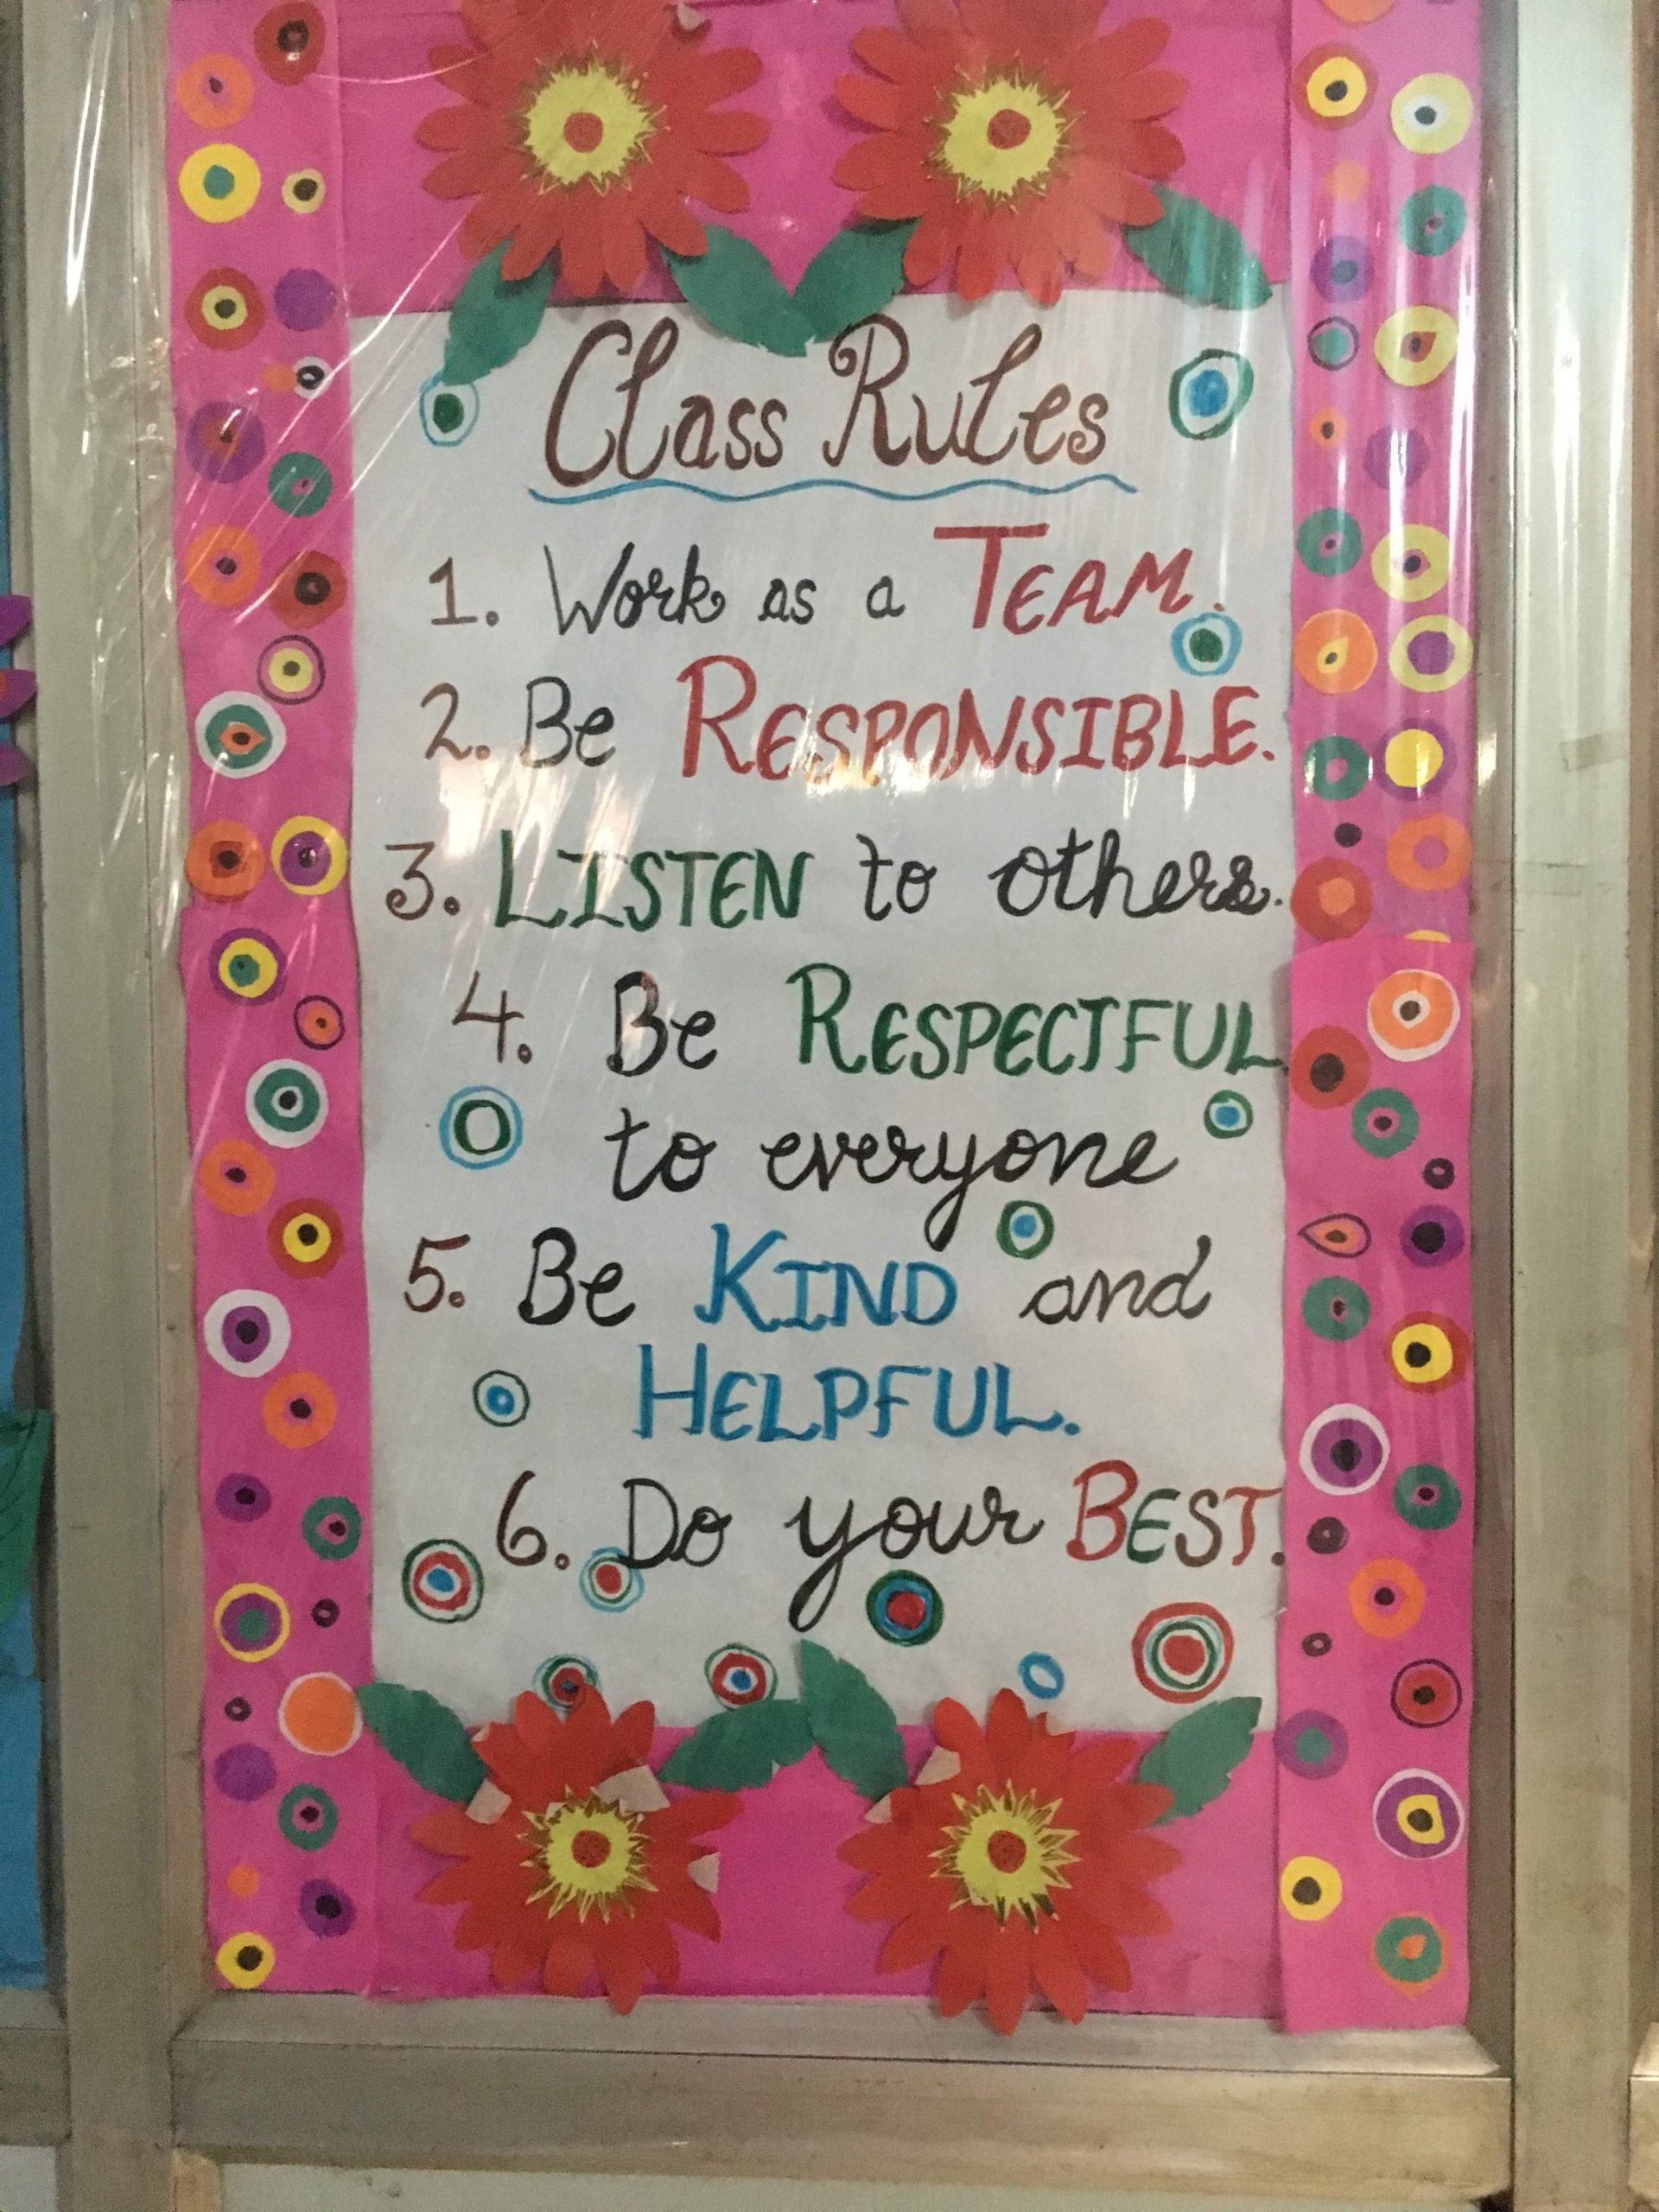 Class Rules
1. Work as a TEAM.
2. Be RESPONSIBLE.
3. LISTEN to others.
4. Be RESPECTFUL.
to everyone
5. Be KIND and
HELPFUL.
6. Do your BEST.